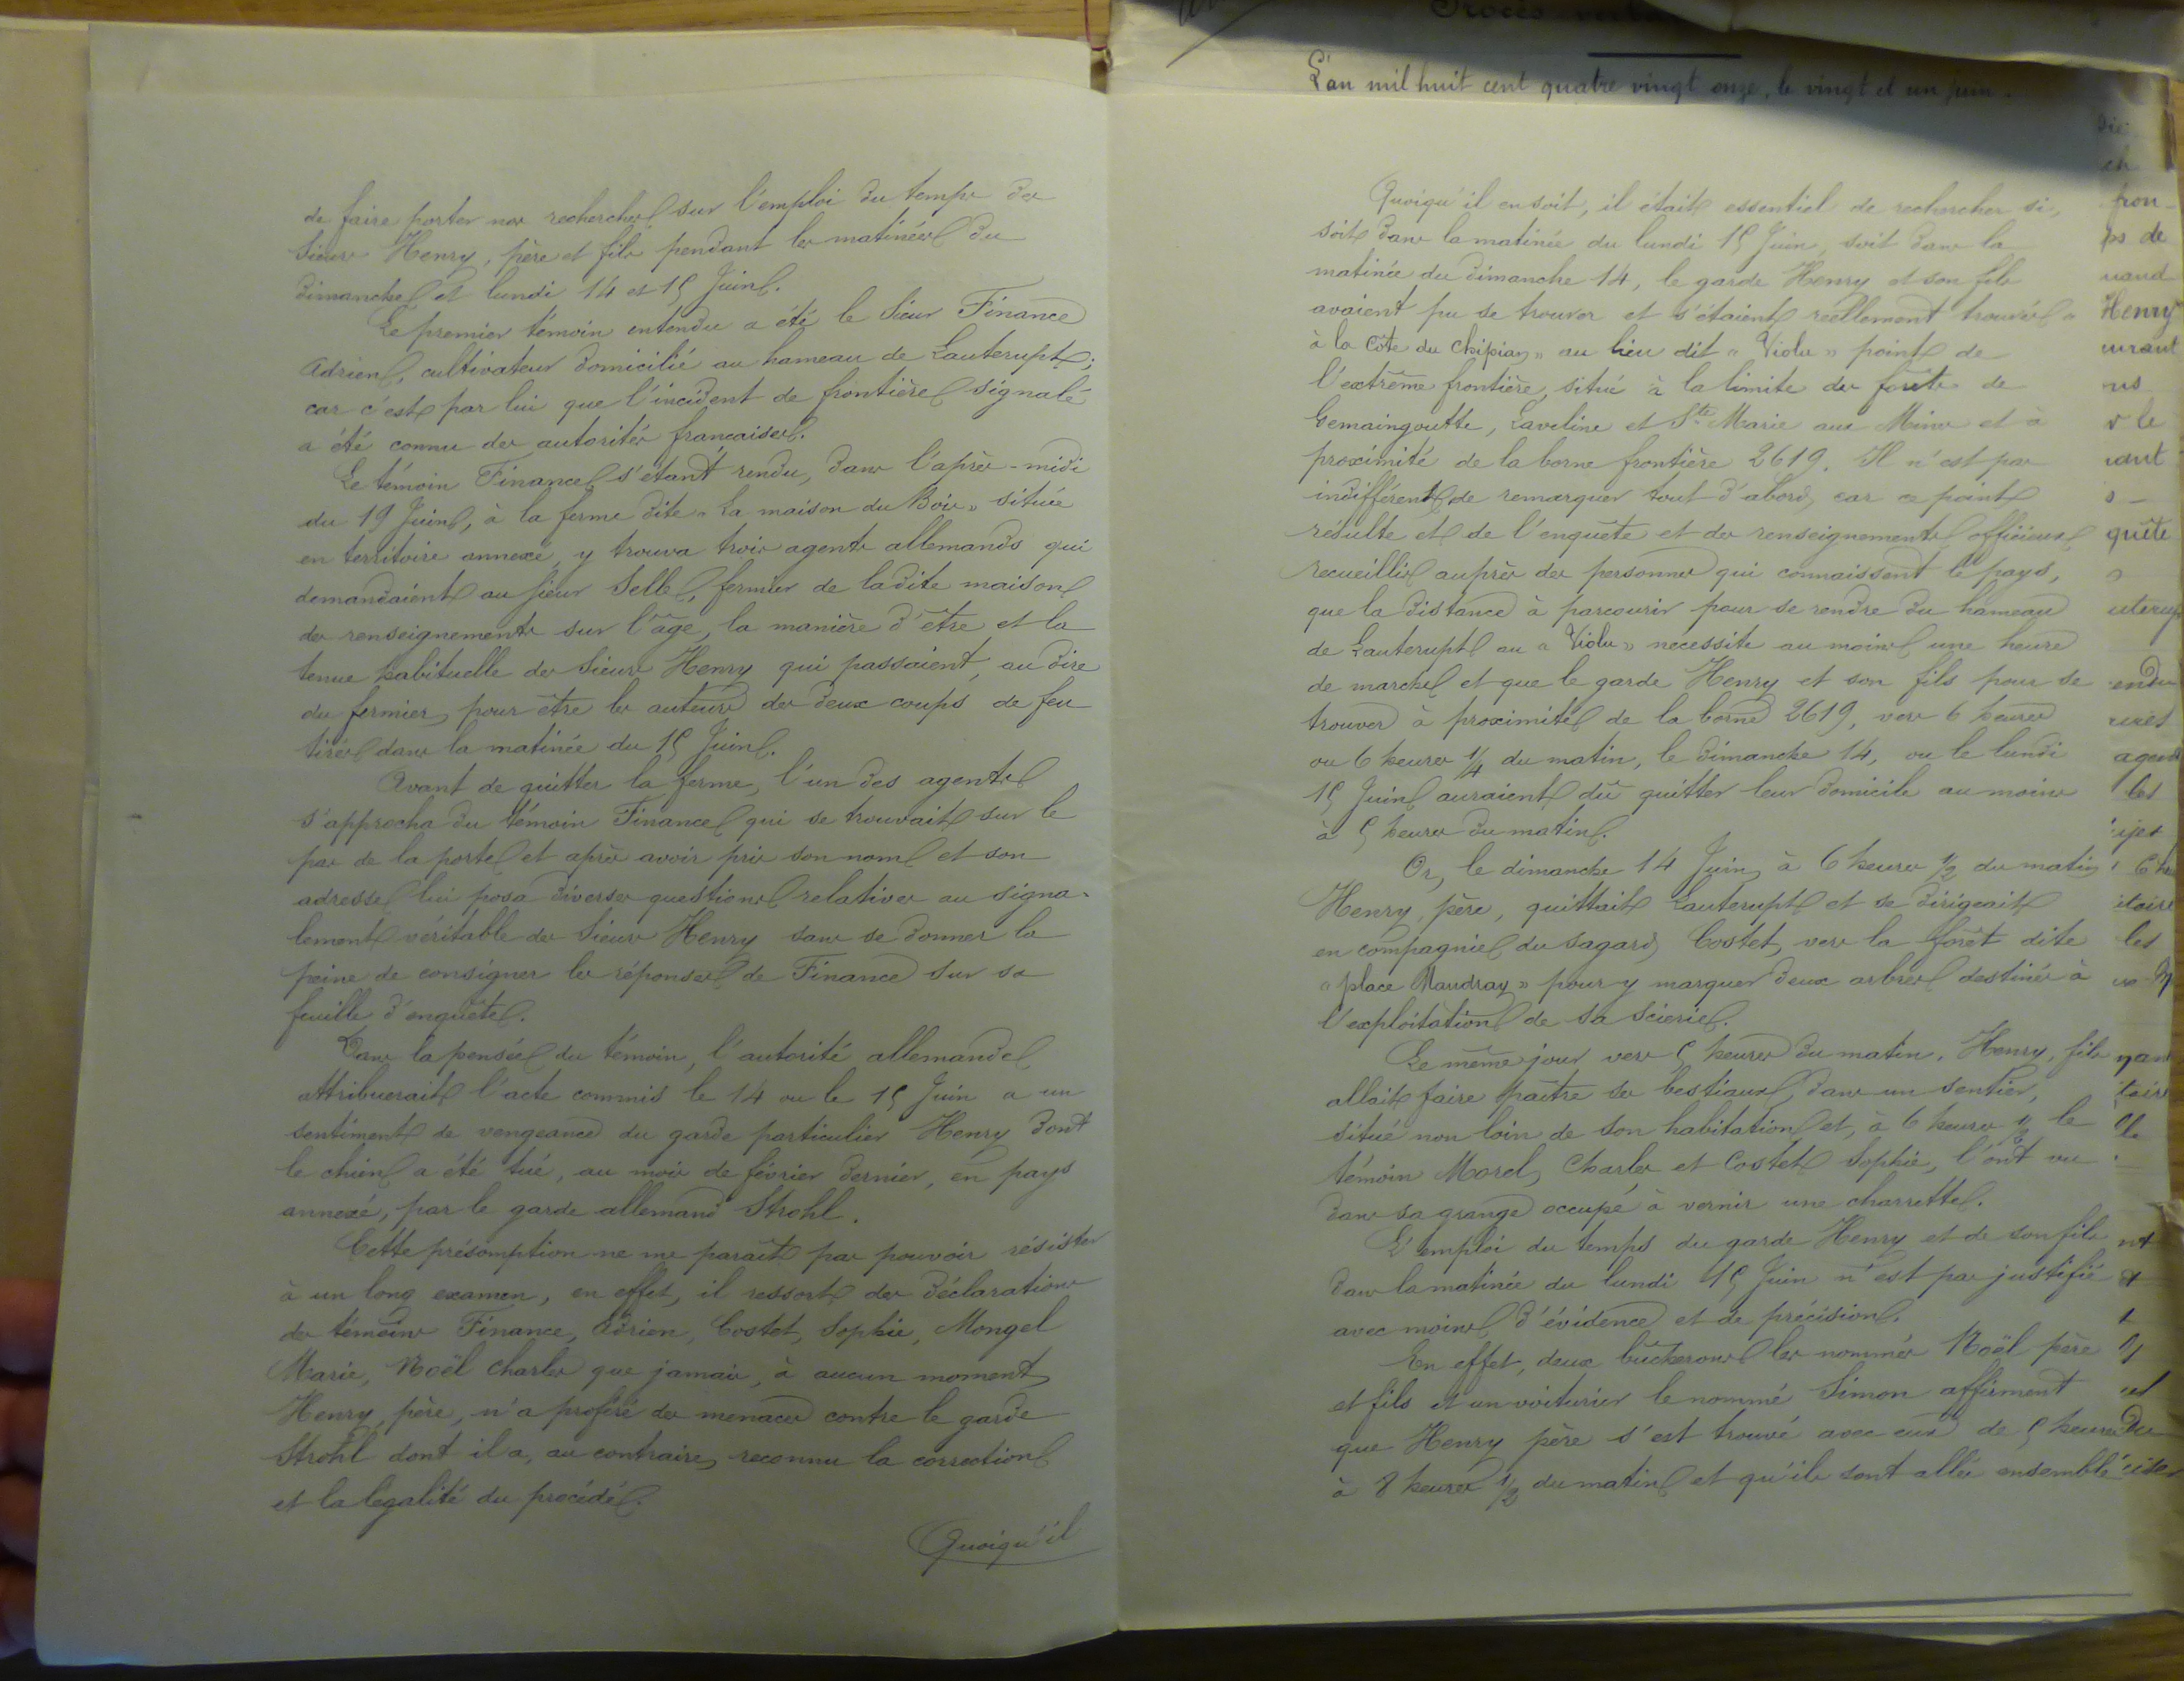 de faire porter nos recherches sur l'emploi du temps des
Sieurs Henry, père et fils pendant les matinées du
dimanche et lundi 14 et 15 Juin.
Le premier témoin entendu a été le Sieur Finance
Adrien, cultivateur domicilié au hameau de Lauterupt;
car c'est par lui que l'incident de frontière signalé
a été connu des autorités françaises.
Le témoin Finance s'étant rendu, dans l'après-midi
du 19 Juin, à la ferme dite « La maison du Bois » située
en territoire annexé, y trouva trois agents allemands qui
demandaient au sieur Selle, fermier de ladite maison
des renseignements sur l'âge, la manière d'être et la
tenue habituelle des Sieurs Henry qui passaient, au dire
du fermier, pour être les auteurs des deux coups de feu
tirés dans la matinée du 15 Juin.
Avant de quitter la ferme, l'un des agents
s'approcha du témoin Finance qui se trouvait sur le
pas de la porte et après avoir pris son nom et son
adresse lui posa diverses questions relatives au signa-
lement véritable des Sieurs Henry sans se donner la
peine de consigner les réponses de Finance sur sa
feuille d'enquête.
Dans la pensée du témoin, l'autorité allemande
attribuerait l'acte commis le 14 ou le 15 Juin a un
sentiment de vengeance du garde particulier Henry dont
le chien a été tué, au mois de février dernier, en pays
annexé, par le garde allemand Strohl.
Cette présomption ne me paraît pas pouvoir résister
à un long examen, en effet, il ressort des déclarations
des témoins Finance, Adrien, Costet, Sophie, Mongel
Marie, Noël Charles que jamais, à aucun moment
Henry, père, n'a proféré des menaces contre le garde
Strohl dont il a, au contraire, reconnu la correction
et la légalité du procédé.
Quoiqu'il
L'an mil huit cent quatre vingt onze, le vingt et un juin.
Quoiqu'il en soit, il était essentiel de rechercher si,
soit dans la matinée du lundi 15 Juin, soit dans la
matinée du dimanche 14, le garde Henry et son fils
avaient pu se trouver et s'étaient réellement trouvés «
à la Côte du Chipian » au lieu dit « Violu » point de
l'extrême frontière, situé à la limite des forêts de
Gemaingoutte, Laveline et Ste Marie aux Mines et à
proximité de la borne frontière 2619. Il n'est pas
indifférent de remarquer tout d'abord, car ce point
résulte et de l'enquête et des renseignements officieux
recueillis auprès des personnes qui connaissent le pays,
que la distance à parcourir pour se rendre du hameau
de Lauterupt au « Violu » nécessite au moins une heure
de marche et que le garde Henry et son fils pour se
trouver à proximité de la borne 2619, vers 6 heures
ou 6 heures 1/4 du matin, le dimanche 14, ou le lundi
15 Juin auraient dû quitter leur domicile au moins
à 5 heures du matin.
Or, le dimanche 14 Juin, à 6 heures 1/2 du matin
Henry, père, quittait Lauterupt et se dirigeait
en compagnie du sagard Costet, vers la forêt dite
« place Mandray » pour y marquer deux arbres destinés à
l'exploitation de sa scierie.
Le même jour, vers 5 heures du matin, Henry, fils
allait faire paître ses bestiaux, dans un sentier,
situé non loin de son habitation et, à 6 heures 1/2 le
témoin Morel, Charles et Costet Sophie, l'ont vu
dans sa grange occupé à vernir une charrette.
L'emploi du temps du garde Henry et de son fils
dans la matinée du lundi 15 Juin n'est pas justifié
avec moins d'évidence et de précision.
En effet, deux bûcherons les nommés Noël père
et fils et un voiturier le nommé Simon affirment
que Henry père s'est trouvé avec eux de 5 heures
à 8 heures 1/2 du matin et qu'ils sont allés ensemble